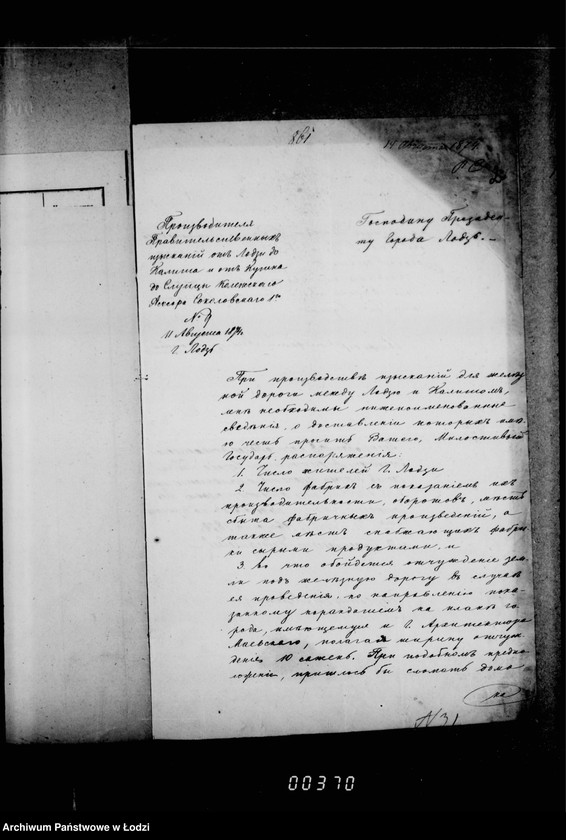 861
14 Августа 1874
Производителя
Правительственныхъ
изысканій отъ Лодзи до
Калиша и отъ Кутна
до Слупцы Колежскаго
Асесора Соколовскаго 1го
№ 9
11 Августа 1874.
Г. Лодзь
Господину Президен-
ту Города Лодзь. –
При производствѣ изысканій для желѣз
ной дороги между Лодзью и Калишомъ,
мнѣ необходимы нижепоименованные
свѣдѣнія, о доставленіи которыхъ имѣ
ю честь просить Вашего, Милостивый
Государь, распоряженія:
1. Число жителей Г. Лодзи
2. Число фабрикъ съ показаніемъ ихъ
производительности, оборотовъ, мѣстъ
сбыта фабричныхъ произведеній, а
также мѣстъ снабжающихъ фабри
ки сырыми продуктами, и
3. во что обойдется отчужденіе зем
ли подъ желѣзную дорогу въ случаѣ
ея проведенія, по направленію пока-
занному карандашемъ на планѣ го
рода, имѣющемуся у Г. Архитектора
Маевскаго, полагая ширину отчуж
денія 10 сажень. При подобномъ предпо
ложеніи, пришлось бы сломать дома
№ 31
00370
Archiwum Państwowe w Łodzi